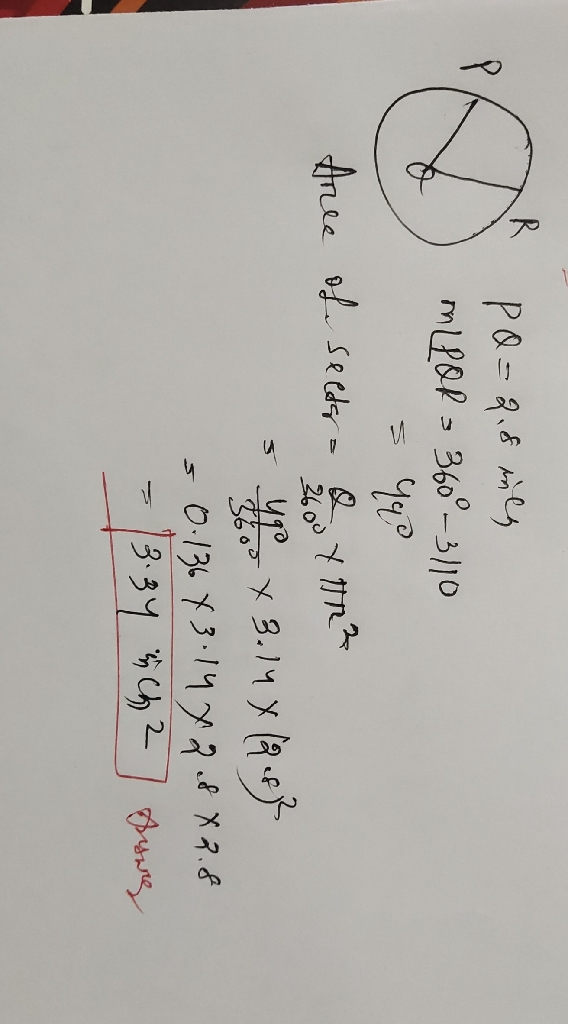 P
R
Q
PQ = 2.8 inch
m∠PQR = 360° - 311°
= 49°
Area of sector = θ/360° × πr²
= 49°/360° × 3.14 × (2.8)²
= 0.136 × 3.14 × 2.8 × 2.8
= 3.34 inch²
Answer